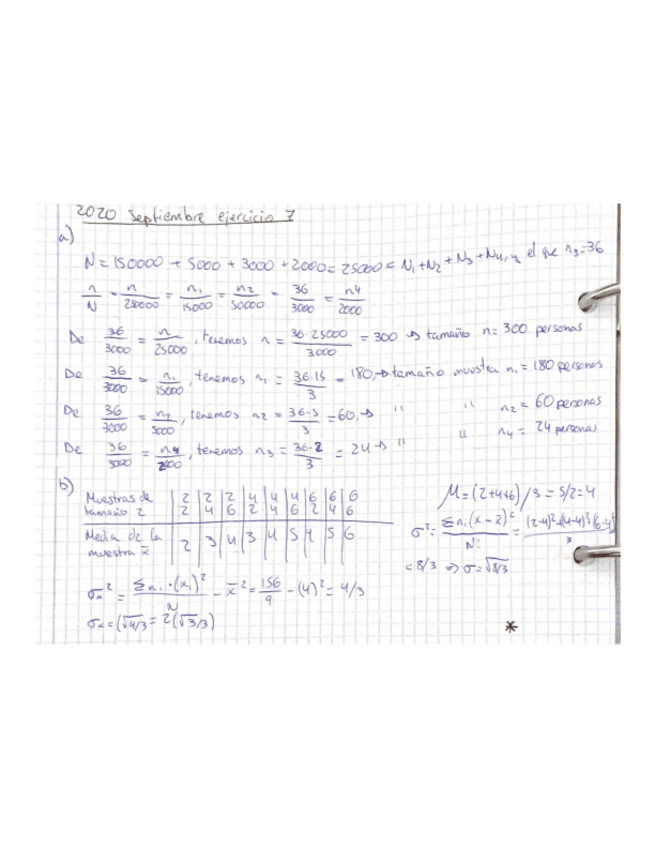 2020 Septiembre ejercicio 7
a)
N = 150000 + 5000 + 3000 + 2000 = 25000 = N1 + N2 + N3 + N4, y el que n3 = 36
n/N = n/25000 = n1/15000 = n2/50000 = 36/3000 = n4/2000
De 36/3000 = n/25000, tenemos n = 36·25000/3000 = 300 → tamaño n = 300 personas
De 36/3000 = n1/15000, tenemos n1 = 36·15/3 = 180, → tamaño muestra n1 = 180 personas
De 36/3000 = n2/5000, tenemos n2 = 36·5/3 = 60, → " " n2 = 60 personas
De 36/3000 = n4/2000, tenemos n3 = 36·2/3 = 24 → " " n4 = 24 personas
b)
Muestras de tamaño 2 | 2 2 | 2 4 | 2 6 | 4 2 | 4 4 | 4 6 | 6 2 | 6 4 | 6 6
Media de la muestra x̄ | 2 | 3 | 4 | 3 | 4 | 5 | 4 | 5 | 6
μ = (2+4+6)/3 = 5/2 = 4
σ² = Σni(x-x̄)²/N = (2-4)²+(4-4)²+(6-4)²/3
= 8/3 ⇒ σ = √8/3
σx² = Σni·(xi)²/N - x̄² = 156/9 - (4)² = 4/3
σx = (√4/3 = 2(√3/3)
*